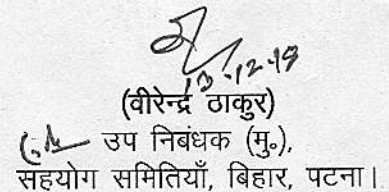 13-12-18
(वीरेन्द्र ठाकुर)
उप निबंधक (मु०),
सहयोग समितियाँ, बिहार, पटना।